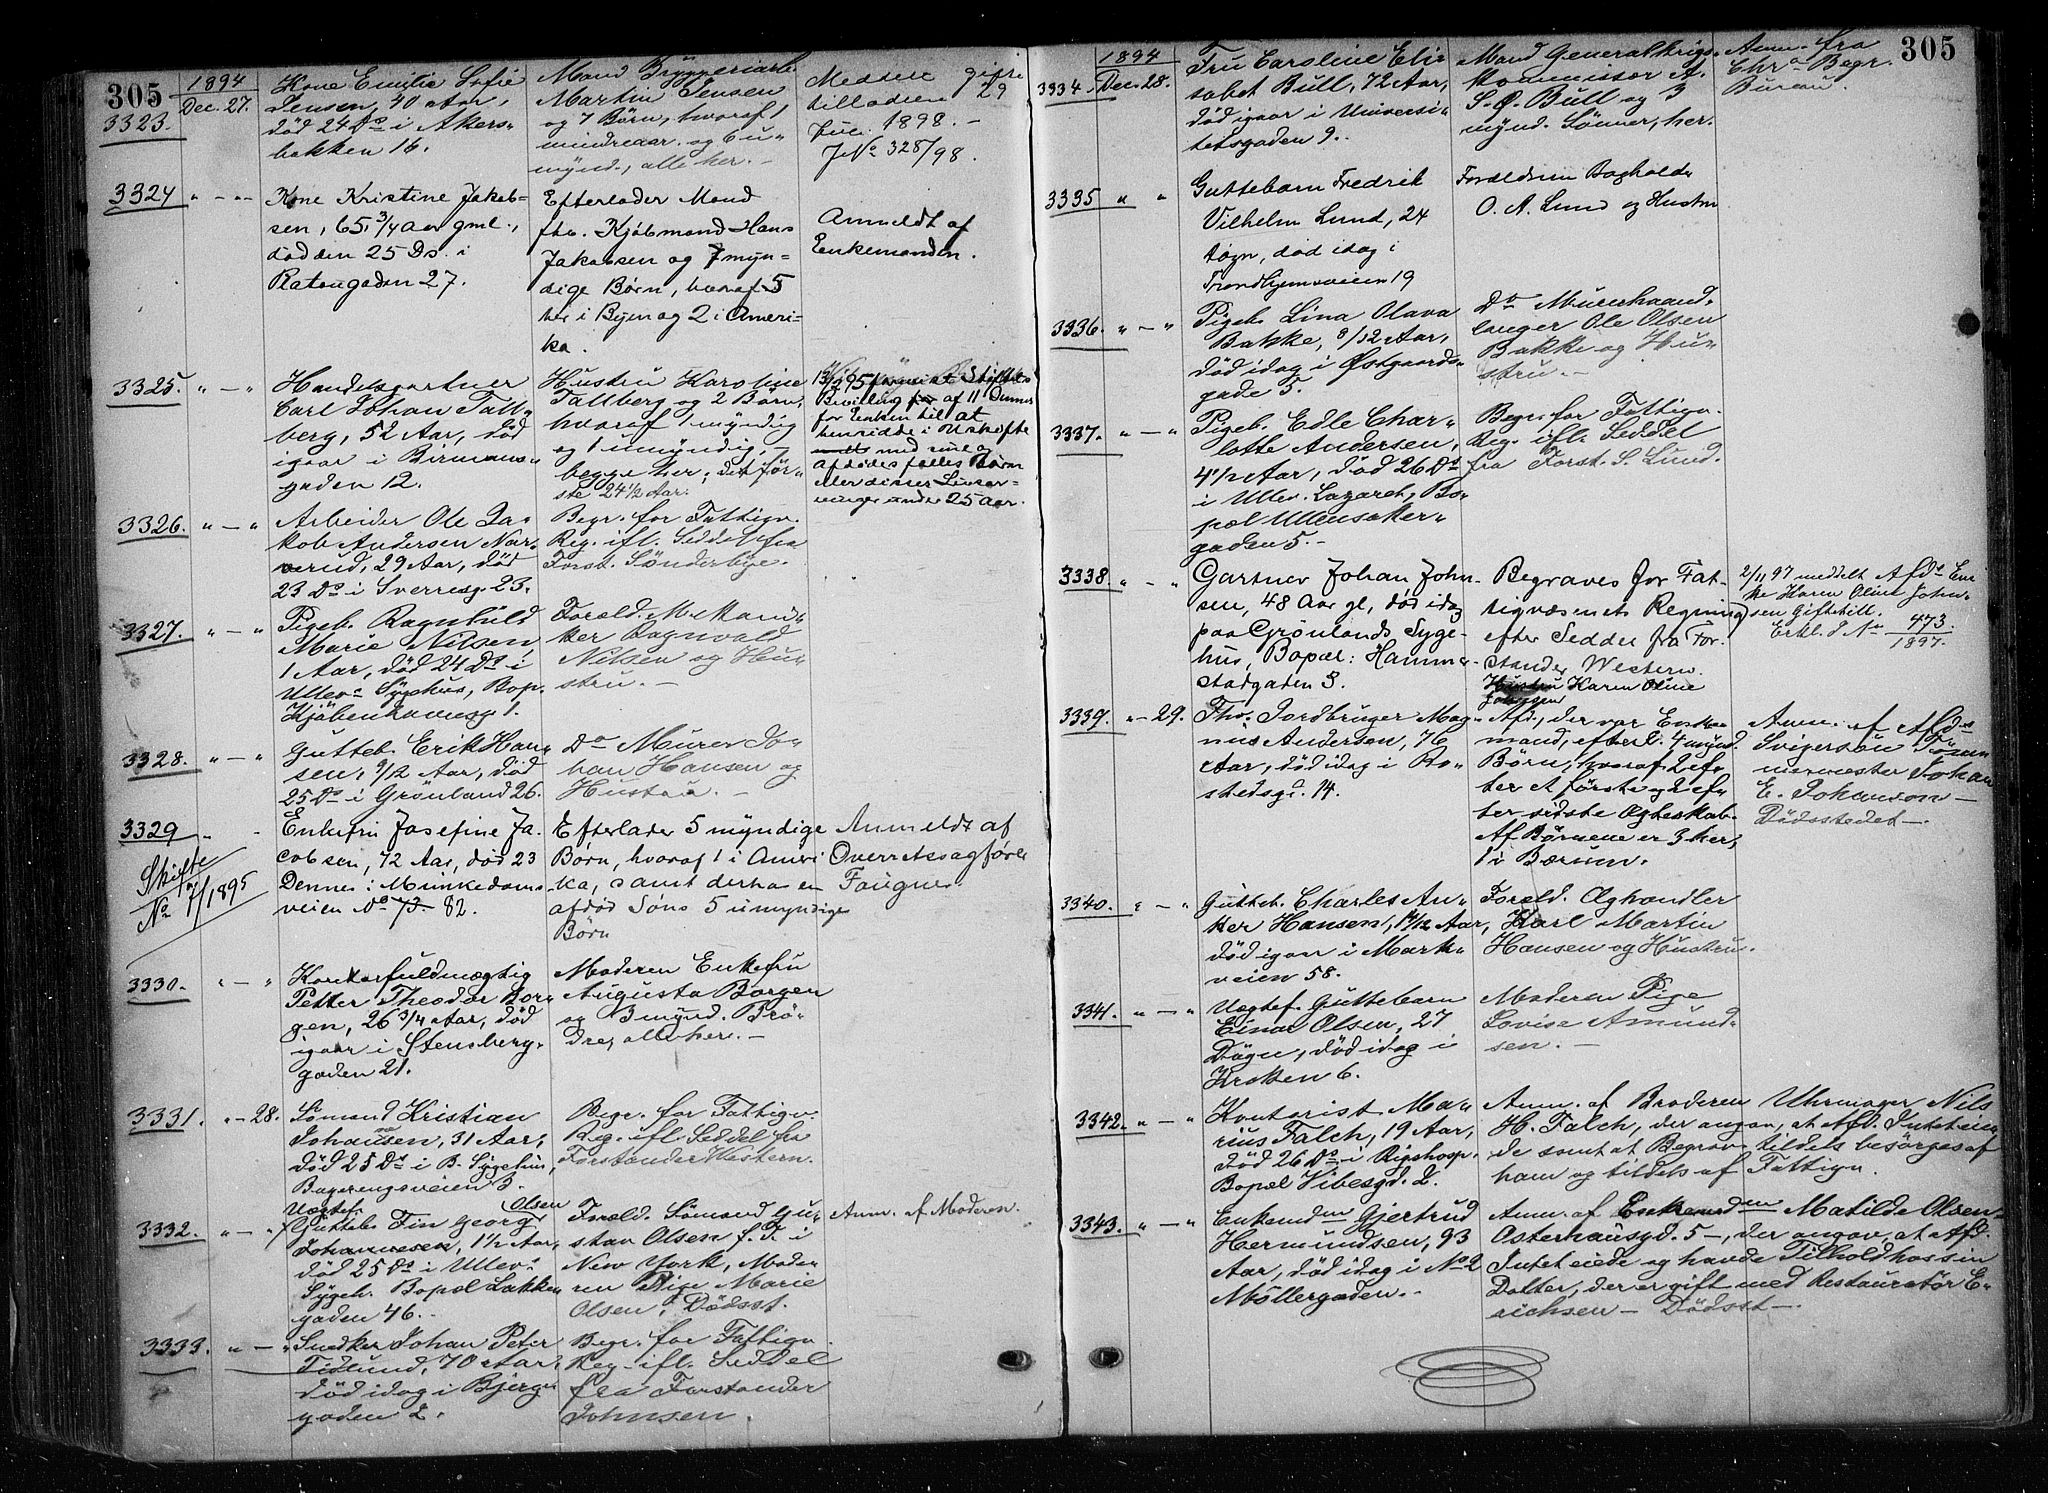 305
1894
3323.
Dec. 27.
Kone Emilie Sofie
Jensen, 40 Aar,
död 24 Ds i Akers-
bakken 16.
Mand Bryggeriarb.
Martin Jensen
og 7 Börn, hvoraf 1
mindreaar. og 6 u-
mynd., alle her. -
Meddelt gifte
tilladelse 29
1898. -
JNo 328/98.
3324 " - "
Kone Kristine Jakob-
sen, 65 3/4 Aar gml.,
död den 25 Ds. i
Platougaden 27.
Efterlader Mand
fhv. Kjöbmand Hans
Jakobsen og 7 myn-
dige Börn, hvoraf 5
her i Byen og 2 i Ameri-
ka.
Anmeldt af
Enkemanden.
3325. " - "
Handelsgartner
Carl Johan Tall-
berg, 52 Aar, död
igaar i Birmans-
gaden 12.
Hustru Karoline
Tallberg og 2 Börn,
hvoraf 1 myndig
og 1 umyndig,
begge her; det för-
ste 24 1/2 Aar.
Bevilling af 11 Dennes
for Enken til at
hensidde i Uskifte
med sine og
afdödes fælles Börn
eller disses Livsar-
vinger under 25 Aar.
3326. " - "
Arbeider Ole Ja-
kob Andersen Nar-
verud, 29 Aar, död
23 Ds i Sverresg. 23.
Begr. for Fattigv.
Reg. ifl. Seddel fra
Forst. Sönderbye.
3327. " - "
Pigeb. Ragnhild
Marie Nilsen,
1 Aar, död 24 Ds i
Ullev. Sygehus, Bop.
Kjöbenhavnsg. 1.
Foræld.
Ragnvald
Nilsen og Hu-
stru. -
3328. " - "
Gutteb. Erik Han-
sen, 9/12 Aar, död
25 Ds i Grönland 26.
Do Murer Jo-
han Hansen og
Hustru. -
3329 " "
Skifte
No 7/1895
Enkefru Josefine Ja-
cobsen, 72 Aar, död 23
Dennes i Munkedams-
veien No 73. 82.
Efterlader 5 myndige
Börn, hvoraf 1 i Ameri
ka, samt derhos en
afdöd Söns 5 umyndige
Börn
Anmeldt af
Overretssagförer
Fougner
3330. " - "
Kontorfuldmægtig
Petter Theodor Bor-
gen, 26 3/4 Aar, död
igaar i Stensberg-
gaden 21.
Moderen Enkefru
Augusta Borgen
og 3 mynd. Brö-
dre, alle her. -
3331. " - 28.
Sömand Kristian
Johansen, 31 Aar,
död 25 Ds i B. Sygehus,
Bogerengsveien 3.
Begr. for Fattigv.
Reg. ifl. Seddel fra
Forstander Western.
3332. " - "
Uægtef. Olsen
Gutteb. Fin Georg
Johannesen, 1 1/2 Aar,
död 25 Ds i Ullev.
Sygeh. Bopæl Lakke
gaden 46.
Foræld. Sömand Gu-
stav Olsen f. T. i
New York, Mode-
ren Pige Marie
Olsen, Dödsst.
Anm. af Moderen.
3333. " - "
Snedker Johan Peter
Tidlund, 70 Aar,
död idag i Bjerg-
gaden 2.
Begr. for Fattigv.
Reg. ifl. Seddel
fra Forstander
Johnsen.
305
1894
3334. Dec. 28.
Fru Caroline Eli-
sabet Bull, 72 Aar,
död igaar i Universi-
tetsgaden 9.
Mand Generalkrigs-
kommissær A.
S. Ø. Bull og 3
mynd. Sönner, her.
Anm. fra
Chra Begr.
Bureau.
3335 " "
Guttebarn Fredrik
Vilhelm Lund, 24
Dögn, död idag i
Trondhjemsveien 19
Forældrene Bogholder
O. A. Lund og Hustru
3336. " - "
Pigeb. Lina Olava
Bakke, 8/12 Aar,
död idag i Østgaards-
gade 5.
Do Murerhaand-
langer Ole Olsen
Bakke og Hu-
stru. -
3337. " - "
Pigeb. Edle Char-
lotte Andersen,
4 1/2 Aar, död 26 Ds
i Ullev. Lazaret, Bo-
pæl Ullensaker-
gaden 5. -
Begr. for Fattigv.
Reg. ifl. Seddel
fra Forst. S. Lund.
3338. " - "
Gartner Johan John-
sen, 48 Aar gl, död idag
paa Grønlands Syge-
hus, Bopæl: Hammer-
stadgaden 3.
Begraves for Fat-
tigvæsenets Regning
efter Seddel fra For-
stander Western.
Hustru Karen Oline
Johnsen
2/11 97 meddelt Afds En-
ke Karen Oline John-
sen Giftetill.
Erkl. J No 473
1897.
3339. " - 29.
Fhv. Jordbruger Mag-
nus Andersen, 76
Aar, död idag i Ro-
stedsgd. 14.
Afd., der var Enke-
mand, efterl. 4 mynd.
Börn, hvoraf 2 ef-
ter et förste og 2 ef-
ter sidste Ægteskab.
Af Börnene er 3 her,
1 i Bærum.
Anm. af Afds
Svigersön Töm-
mermester Johan
E. Johanson -
Dödsstedet -.
3340. " - "
Gutteb. Charles An-
ker Hansen, 14/12 Aar,
död igaar i Mark-
veien 58.
Foræld. Æghandler
Karl Martin
Hansen og Hustru.
3341. " - "
Uægtef. Guttebarn
Einar Olsen, 27
Dögn, död idag i
Kroken 6.
Moderen Pige
Lovise Amund-
sen. -
3342. " - "
Kontorist Ma-
rius Falch, 19 Aar,
död 26 Ds i Rigshosp.
Bopæl Vibesgd. 2.
Anm. af Broderen Uhrmager Nils
H. Falch, der angav, at Afd. Intet eie-
de samt at Begrav. tildels besörges af
ham og tildels af Fattigv.
3343. " - "
Enkemdm Gjertrud
Hermundsen, 93
Aar, död idag i No 2
Möllergaden. -
Anm. af Enkemdm Matilde Olsen -
Osterhausgd. 5 -, der angav, at Afd.
Intet eiede og havde Tilhold hos sin
Datter, der er gift med Restauratör E-
richsen - Dödsst -.